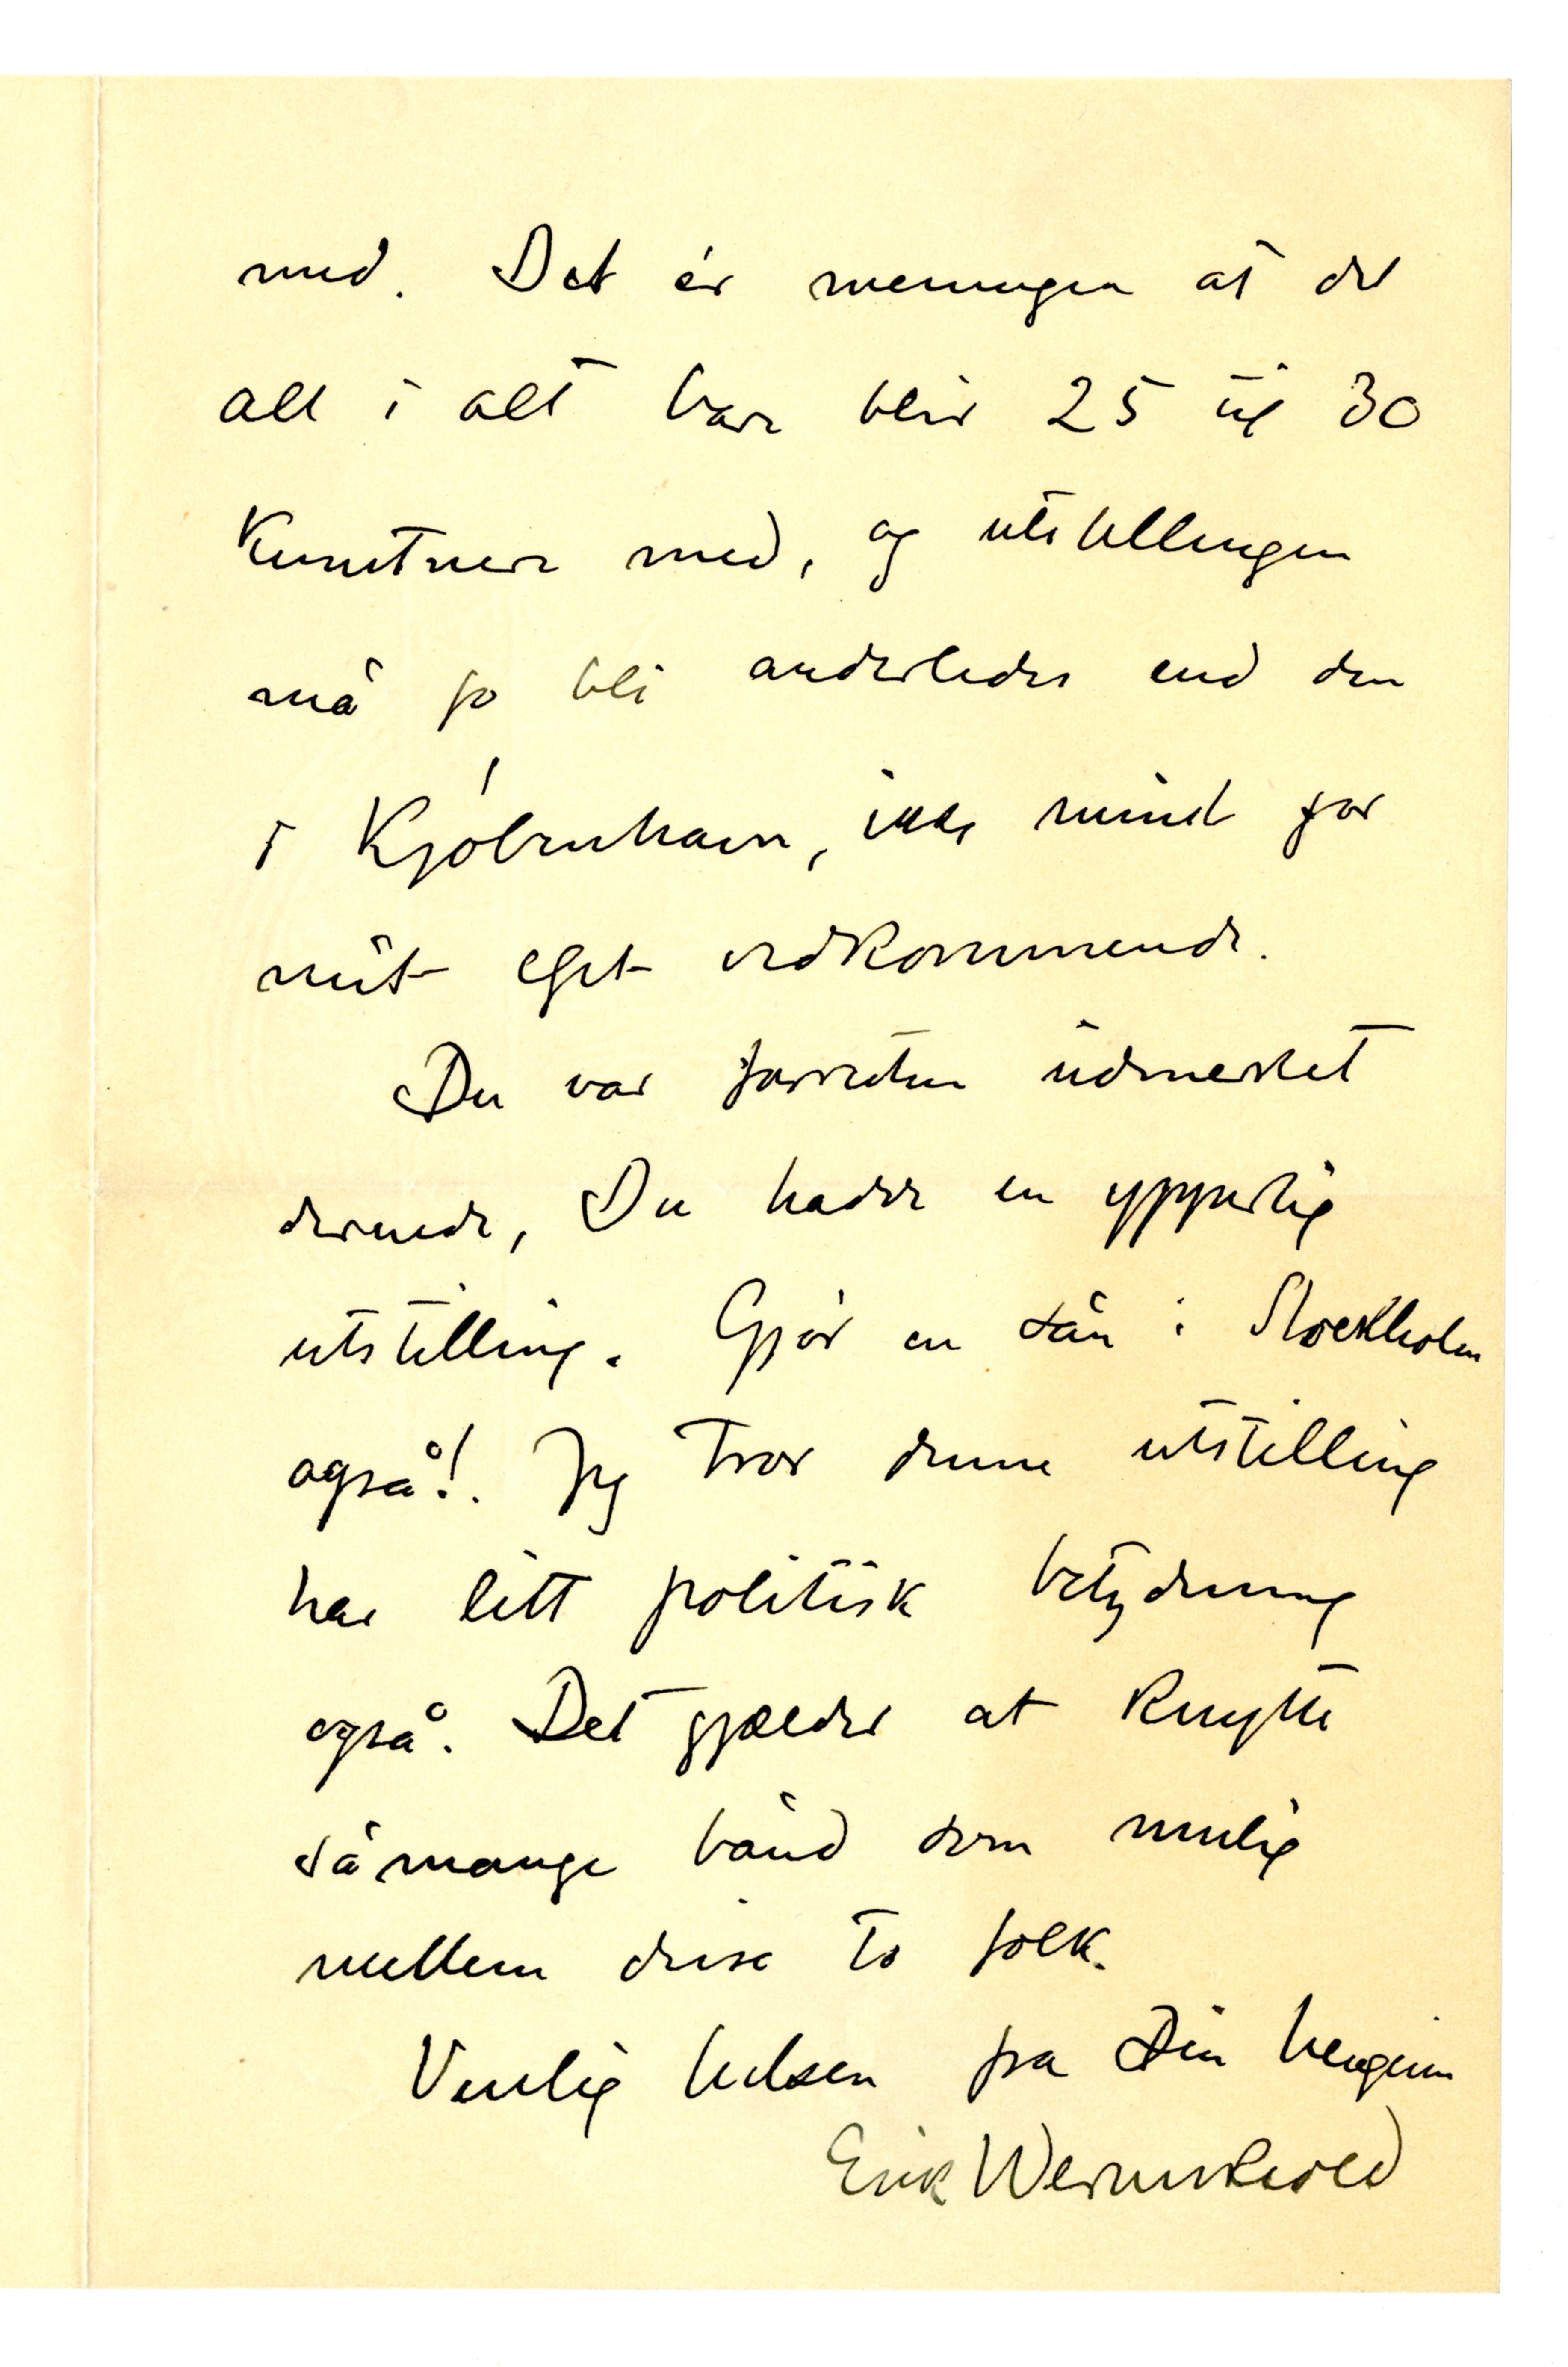 med. Det er meningen at det
alt i alt bare blir 25 til 30
Kunstnere med, og utstillingen
må jo bli anderledes end den
i Kjøbenhavn, ikke mindst for
mit eget vedkommende.
Du var forresten udmerket
dernede, Du hadde en ypperlig
utstilling. Gjør en sån i Stockholm
også!. Jeg tror denne utstilling
har litt politisk betydning
også. Det gjælder at knytte
så mange bånd som mulig
mellem disse to folk.
Venlig hilsen fra Din hengivne
Erik Werenskiold